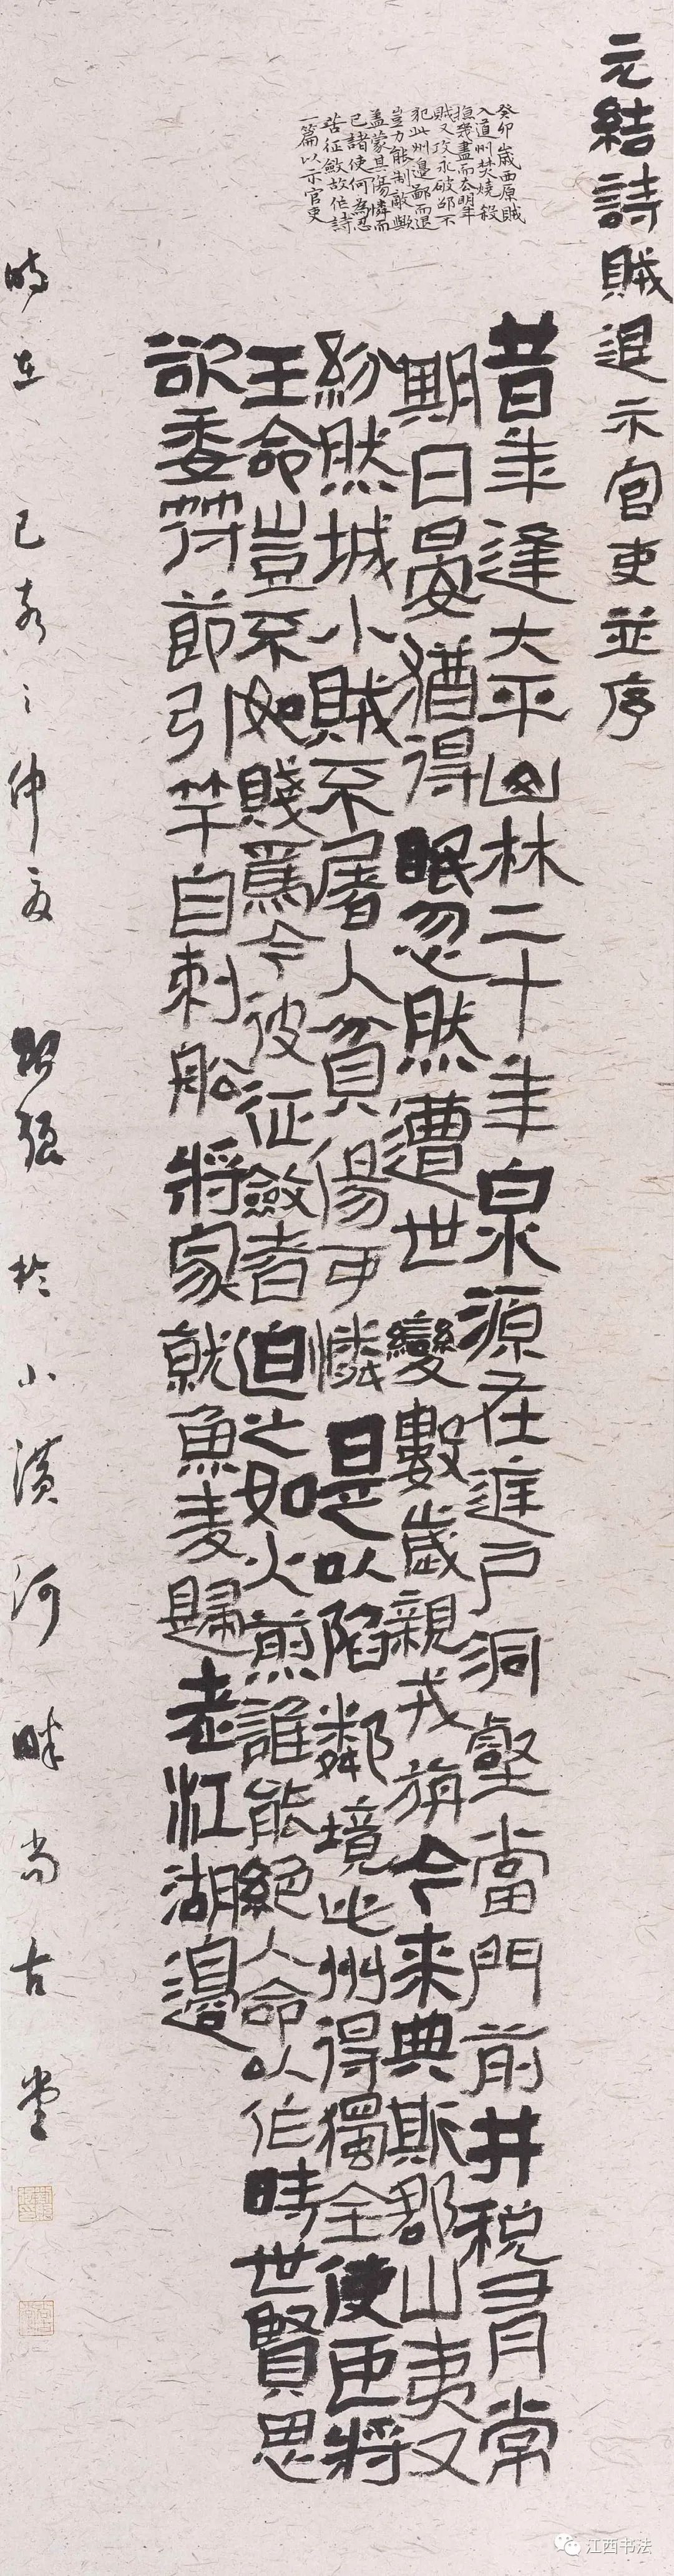 元結詩賊退示官吏並序
癸卯歲西原賊
入道州焚燒殺
幾盡而去明年
賊又攻永破邵不
犯此州邊鄙而退
豈力能制敵歟
蓋蒙其傷憐而
已諸使何為忍
苦征斂故作詩
一篇以示官吏
昔年逢大平山林二十年泉源在庭戶洞壑當門前井稅有常
期日晏猶得眠忽然遭世變數歲親戎旃今来典斯郡山夷又
紛然城小賊不屠人貧傷可憐是以陷鄰境此州得獨全使臣將
王命豈不如賊焉今彼征斂者迫之如火煎誰能絕人命以作時世賢思
欲委符節引竿自刺船將家就魚麦歸老江湖邊
時在己亥之仲夏於小濱河畔尚古堂
江西书法